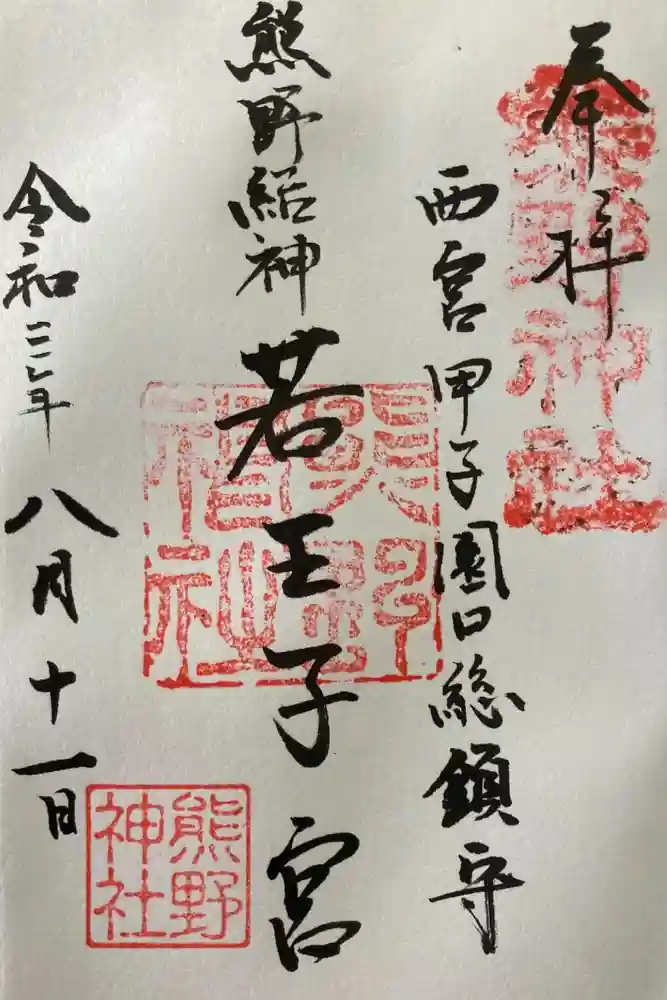 奉拝
熊野神社
西宮甲子園口総鎮守
熊野結神 若王子宮
令和三年八月十一日
熊野神社